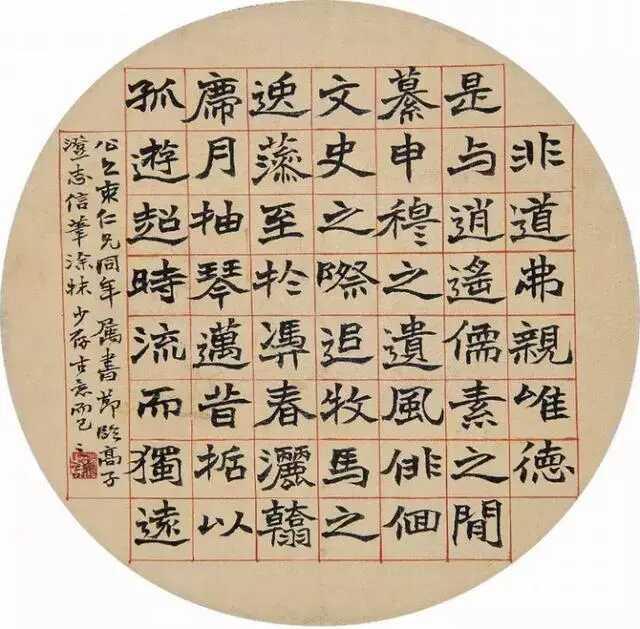 非道弗親唯德
是与逍遙儒素之閒
纂申穆之遺風俳佪
文史之際追牧馬之
逸藻至於馮春灑翰
席月抽琴邁昔哲以
孤遊超時流而獨遠
仁兄同年屬書節臨高子
澄志信筆塗抹少存古意而已